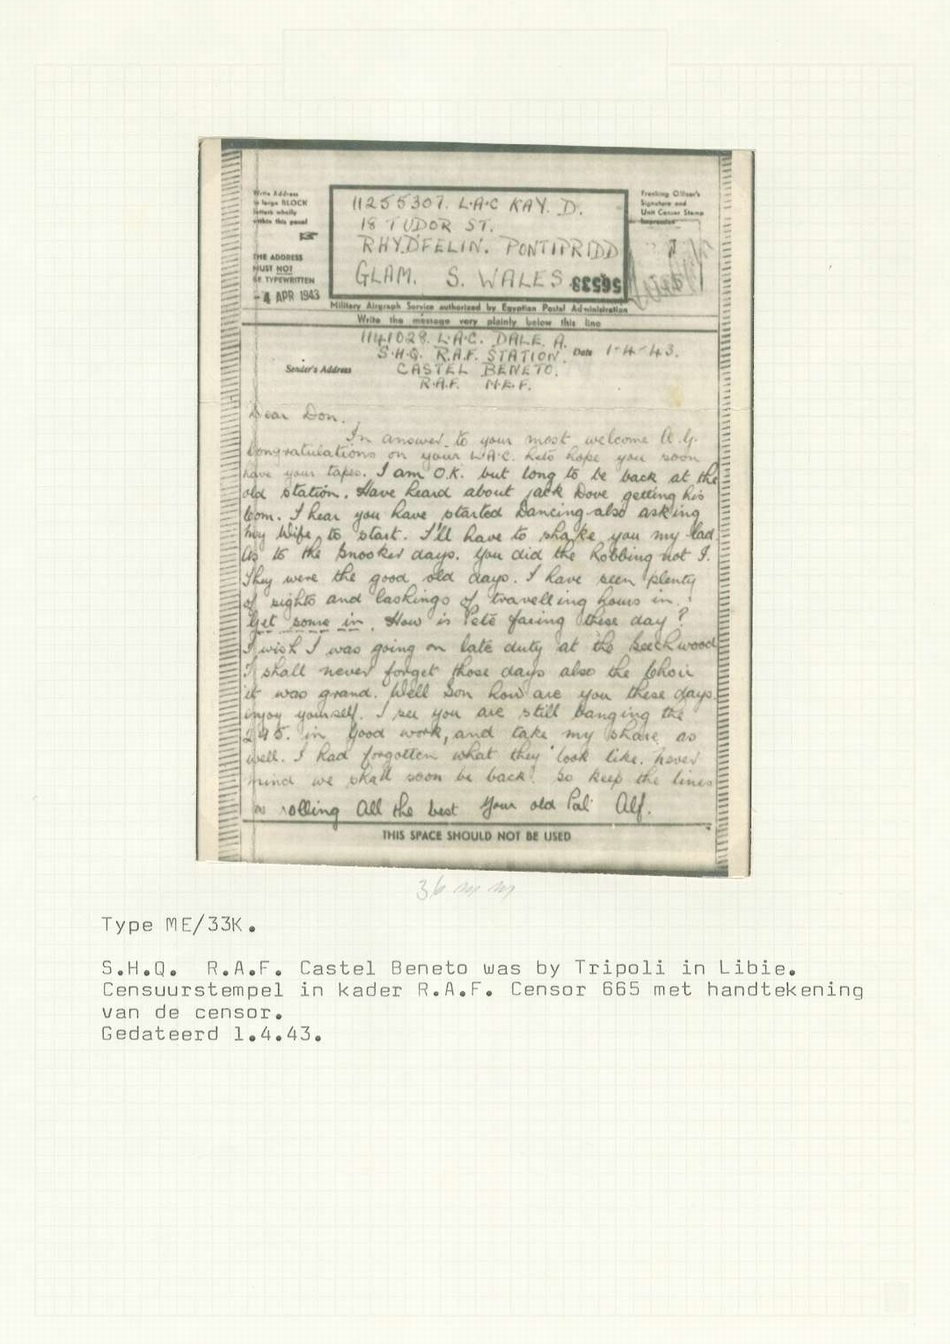 Write Address
in large BLOCK
letters wholly
within this panel
THE ADDRESS
MUST NOT
BE TYPEWRITTEN
-4 APR 1943
11255307. L.A.C KAY. D.
18 TUDOR ST.
RHYDFELIN. PONTIPRIDD
GLAM. S. WALES
56533
Franking Officer's
Signature and
Unit Censor Stamp
Impression
Military Airgraph Service authorized by Egyptian Postal Administration
Write the message very plainly below this line
1141028. L.A.C. DALE. A.
S.H.Q. R.A.F. STATION.
Date 1-4-43.
Sender's Address
CASTEL BENETO.
R.A.F. M.E.F.
Dear Don.
In answer to your most welcome A.G.
Congratulations on your L.A.C. Lets hope you soon
have your tapes. I am O.K. but long to be back at the
old station. Have heard about Jack Dove getting his
Com. I hear you have started Dancing also asking
my Wife to start. I'll have to shake you my lad.
As to the Snooker days. You did the Robbing not I.
They were the good old days. I have seen plenty
of sights and lashings of travelling hours in.!
Get some in. How is Pete faring these day?
I wish I was going on late duty at the Beechwood
I shall never forget those days also the Choir
it was grand. Well Son how are you these days.
enjoy yourself. I see you are still banging the
295. in Good work, and take my share as
well. I had forgotten what they look like. never
mind we shall soon be back! So keep the lines
a rolling All the best Your old Pal Alf.
THIS SPACE SHOULD NOT BE USED
36 m m
Type ME/33K.
S.H.Q. R.A.F. Castel Beneto was by Tripoli in Libie.
Censuurstempel in kader R.A.F. Censor 665 met handtekening
van de censor.
Gedateerd 1.4.43.